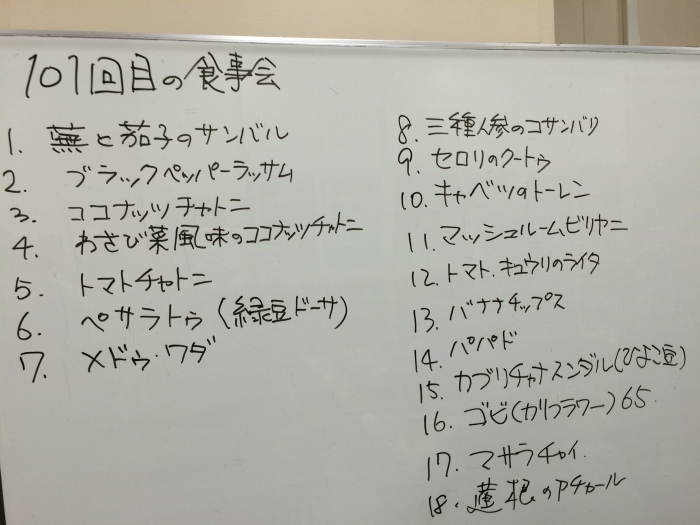 101回目の食事会
1. 蕪と茄子のサンバル
2. ブラックペッパーラッサム
3. ココナッツチャトニ
4. わさび菜風味のココナッツチャトニ
5. トマトチャトニ
6. ペサラトゥ(緑豆ドーサ)
7. メドゥ・ワダ
8. 三種人参のコサンバリ
9. セロリのクートゥ
10. キャベツのトーレン
11. マッシュルームビリヤニ
12. トマト、キュウリのライタ
13. バナナチップス
14. パパド
15. カブリチャナスンダル(ひよこ豆)
16. ゴビ(カリフラワー)65
17. マサラチャイ.
18. 蓮根のアチャール